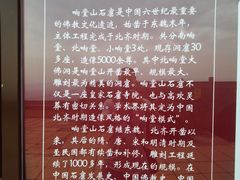 响堂山石窟是中国六世纪最重要
的佛教文化遗迹，始凿于东魏末年，
主体工程完成于北齐时期。共分南响
堂、北响堂、小响堂3处，现存洞窟30
多座，造像5000余尊，其中北响堂大
佛洞是响堂山开凿最早、规模最大、
雕刻最为精美的洞窟。响堂山石窟不
仅是一座皇家石窟寺院，也与高氏
灵葬有密切关系。学术界将其定为中国
北齐时期造像风格的“响堂模式”。
响堂山石窟继东魏、北齐开凿以
来，其后的隋、唐、宋和明清时期及
至民国都有续凿和补修，雕刻工程延
续了1000多年，形成现在的规模。在
中国石窟发展史、中国佛教史、中国